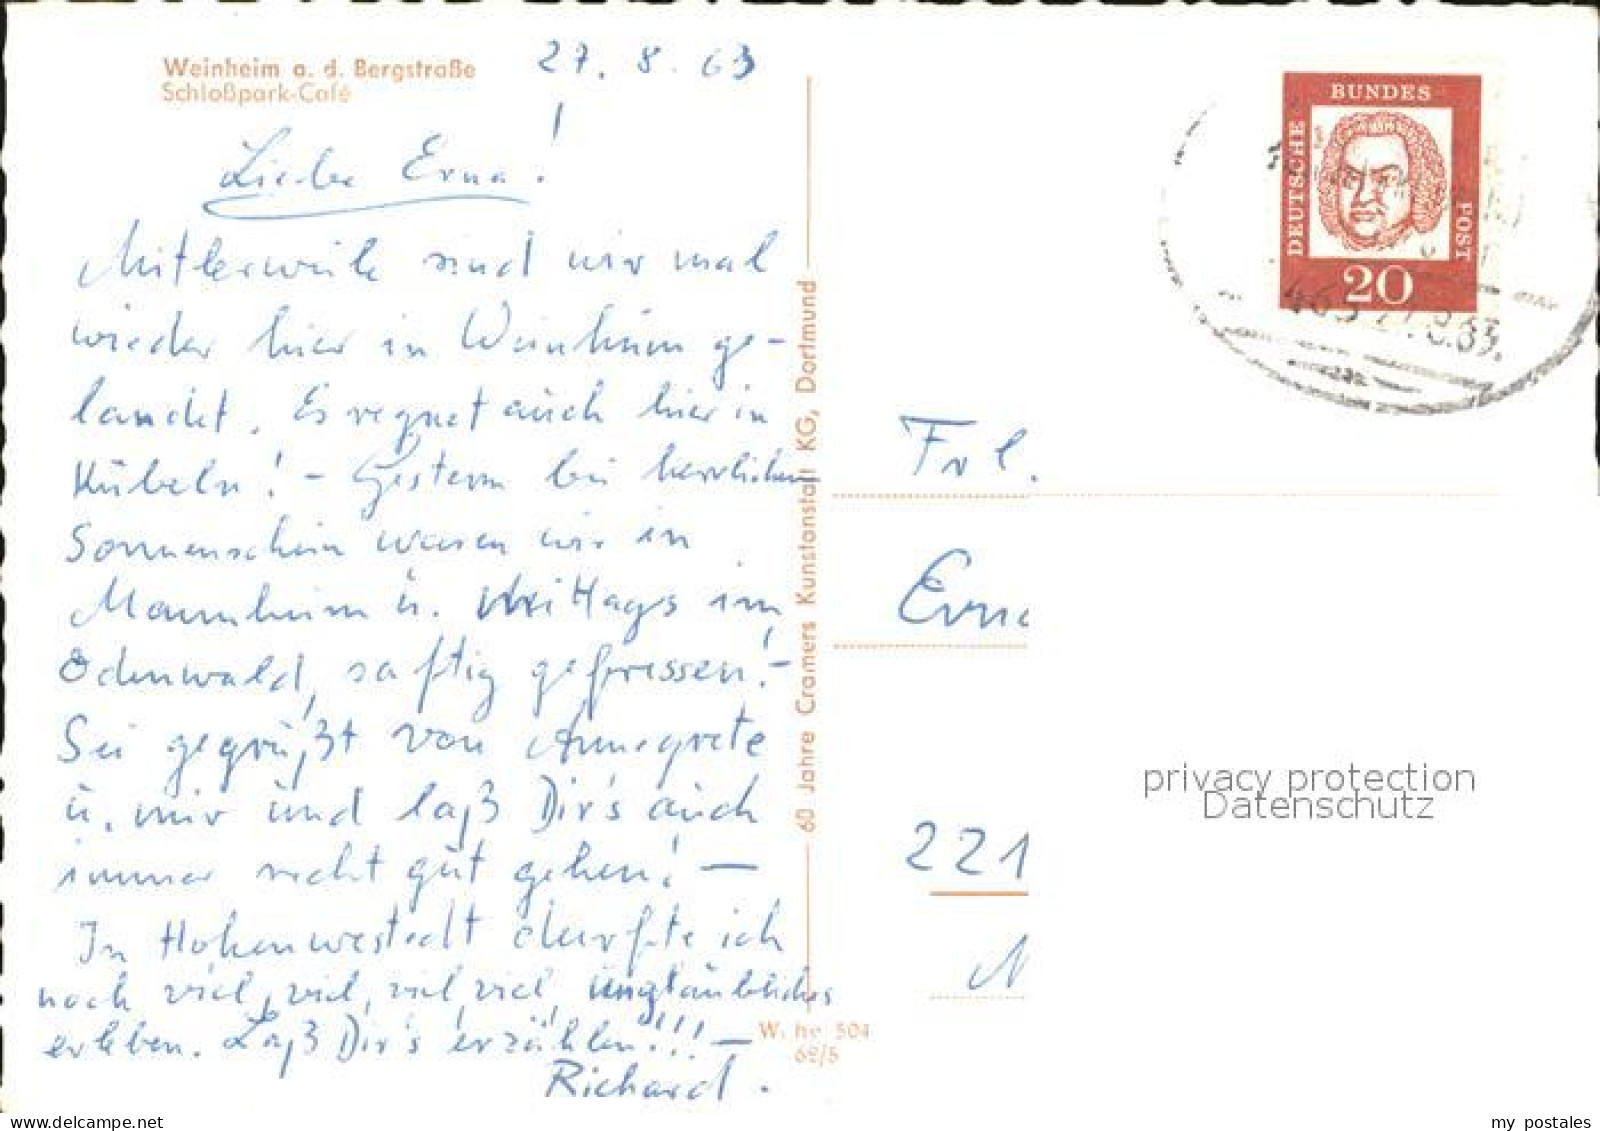 Weinheim a. d. Bergstraße
Schloßpark-Café
27. 8. 63
Liebe Erna!
Mitlerweile sind wir mal
wieder hier in Weinheim ge-
landet. Es regnet auch hier in
Kübeln! - Gestern bei herrlichem
Sonnenschein waren wir in
Mannheim u. Mittags im
Odenwald, saftig gefressen! -
Sei gegrüßt von Annegrete
u. mir und laß Dir's auch
immer recht gut gehen! —
In Hohenwestedt durfte ich
noch viel, viel, viel, viel, unglaubliches
erleben. Laß Dir's erzählen!!! —
Richard.
60 Jahre Cramers Kunstanstalt KG, Dortmund
W. he 504
62/5
DEUTSCHE BUNDES POST
20
465 27.8.63.
Frl.
Erna
221
privacy protection
Datenschutz
my postales